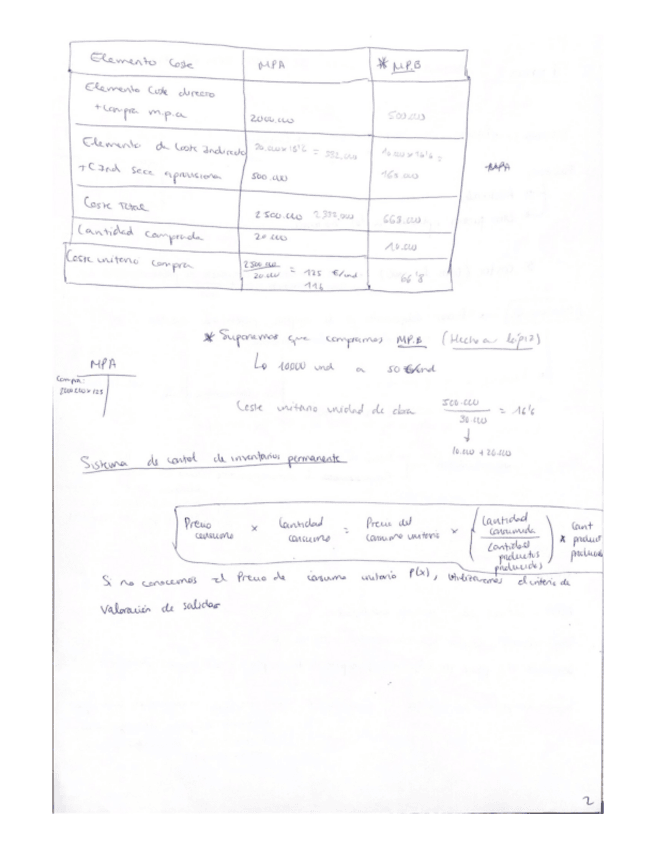 Elemento Coste MPA * MPB
Elemento Coste directo
+ Compra m.p.a 2000.000 500.000
Elemento de Coste Indirecto 20.000x16'6 = 332.000 10.000x16'6 =
+ C Ind secc aprovisiona 500.000 168.000
MPA
Coste Total 2500.000 2.332.000 668.000
Cantidad comprada 20.000 10.000
Coste unitario compra 2500.000 / 20.000 = 125 €/und 66'8
116
* Suponemos que compramos MPB (Hecho a lápiz)
MPA
10000 und a 50 €/und
Compra:
Coste unitario unidad de obra 500.000 / 30.000 = 16'6
10.000 + 20.000
Sistema de control de inventarios permanente
Precio consumo x Cantidad consumo = Precio del consumo unitario x (Cantidad consumida / Cantidad productos producidos) * Cant product producida
Si no conocemos el Precio de consumo unitario P(x), utilizaremos el criterio de
Valoración de salidas
2